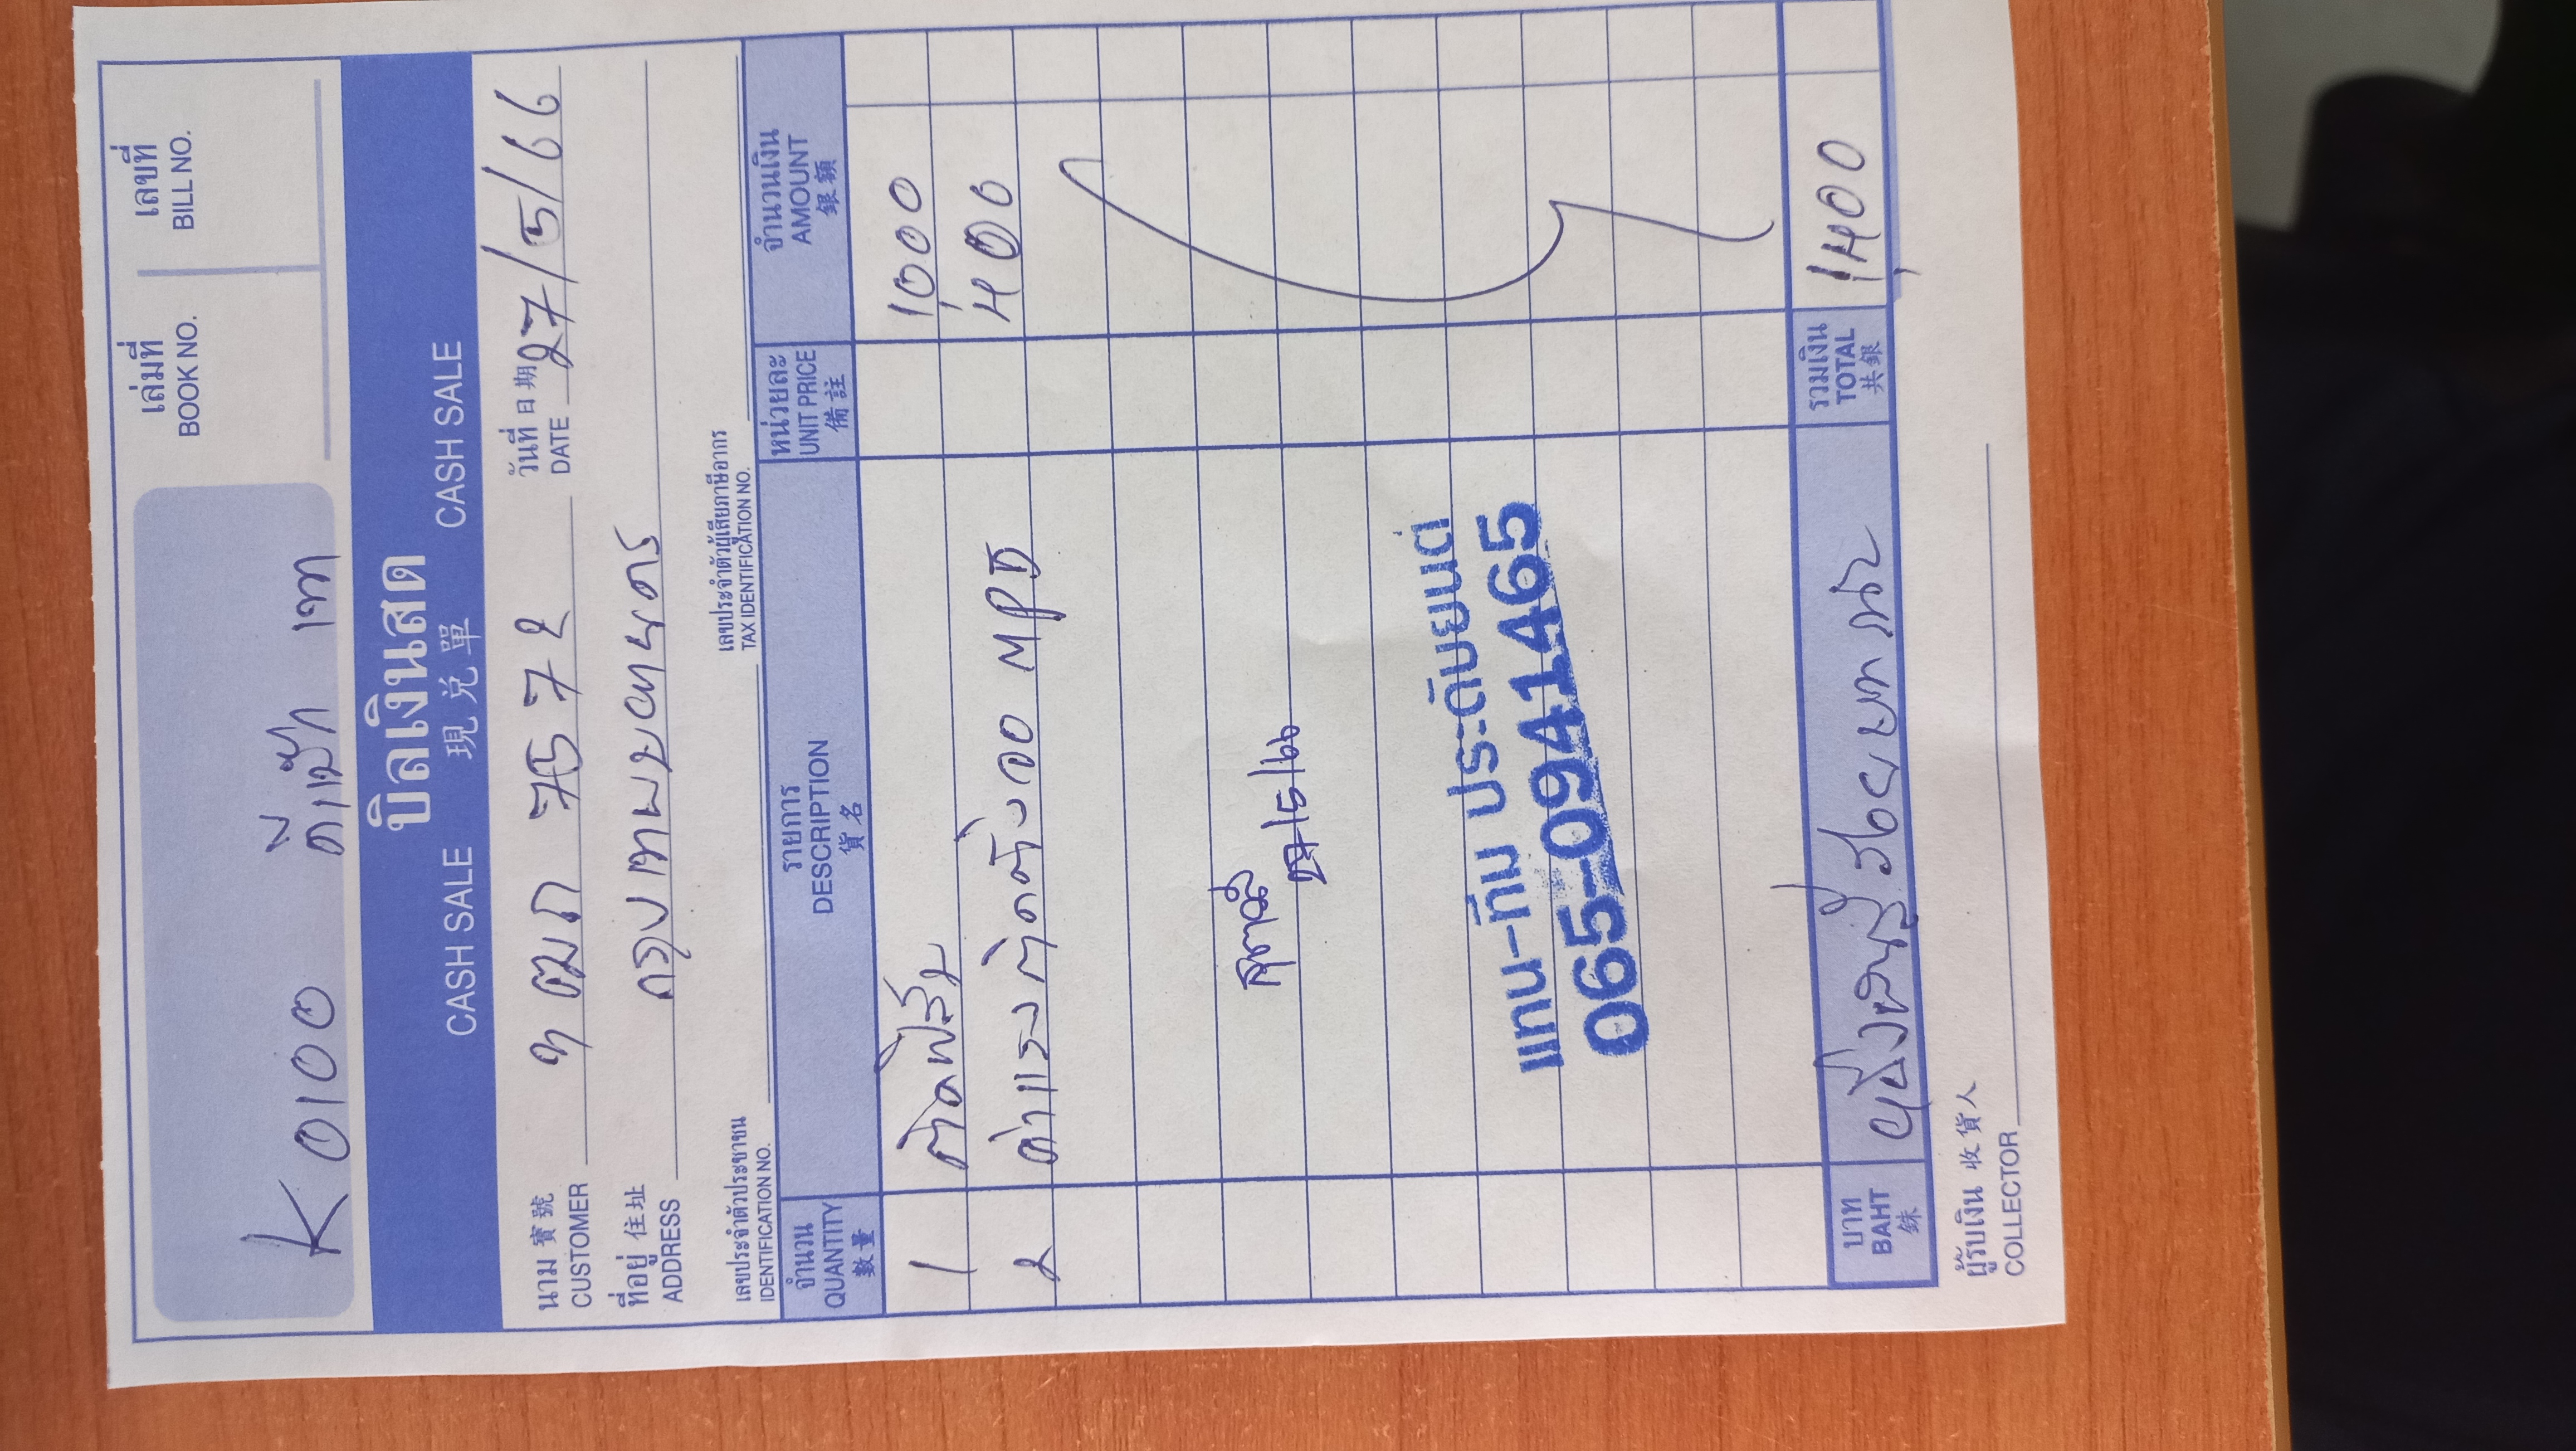 K 0100 ดีแม็ก เทา
เล่มที่ เลขที่
BOOK NO. BILL NO.
บิลเงินสด
CASH SALE 現兌單 CASH SALE
นาม 寶號 7572 วันที่ 日期 27/5/66
CUSTOMER DATE
ที่อยู่ 住址 กรุงเทพมหานคร
ADDRESS
เลขประจำตัวประชาชน เลขประจำตัวผู้เสียภาษีอากร
IDENTIFICATION NO. TAX IDENTIFICATION NO.
จำนวน รายการ หน่วยละ จำนวนเงิน
QUANTITY DESCRIPTION UNIT PRICE AMOUNT
數量 貨名 備註 銀額
1 ติดฟิล์ม 1000
2 ค่าแรงติดตั้งจอ MPD 400
27/5/66
แทน-ทีม ประดับยนต์
065-0941465
บาท หนึ่งพันสี่ร้อยบาทถ้วน รวมเงิน 1,400
BAHT TOTAL
銖 共銀
ผู้รับเงิน 收貨人
COLLECTOR